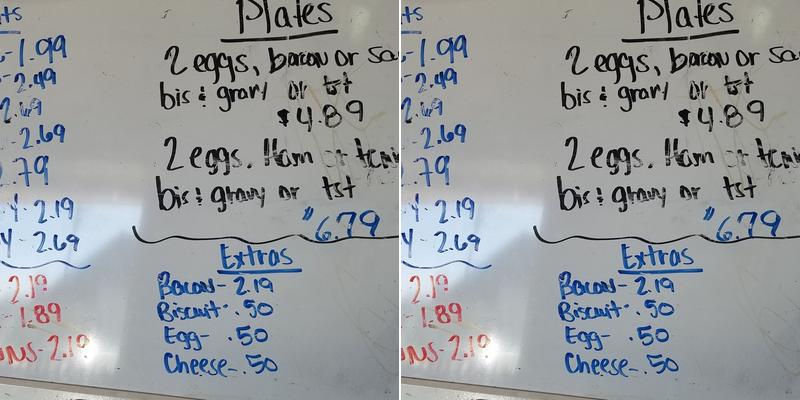 ts
-1.99
-2.49
2.69
-2.69
.79
Y-2.19
Y-2.69
2.19
-1.89
-2.19
Plates
2 eggs, bacon or sa
bis & gravy or tst
$4.89
2 eggs. Ham or
bis & gravy or tst
$6.79
Extras
Bacon- 2.19
Biscuit- .50
Egg- .50
Cheese- .50
ts
-1.99
-2.49
2.69
-2.69
.79
Y-2.19
Y-2.69
2.19
-1.89
-2.19
Plates
2 eggs, bacon or sa
bis & gravy or tst
$4.89
2 eggs. Ham or
bis & gravy or tst
$6.79
Extras
Bacon- 2.19
Biscuit- .50
Egg- .50
Cheese- .50